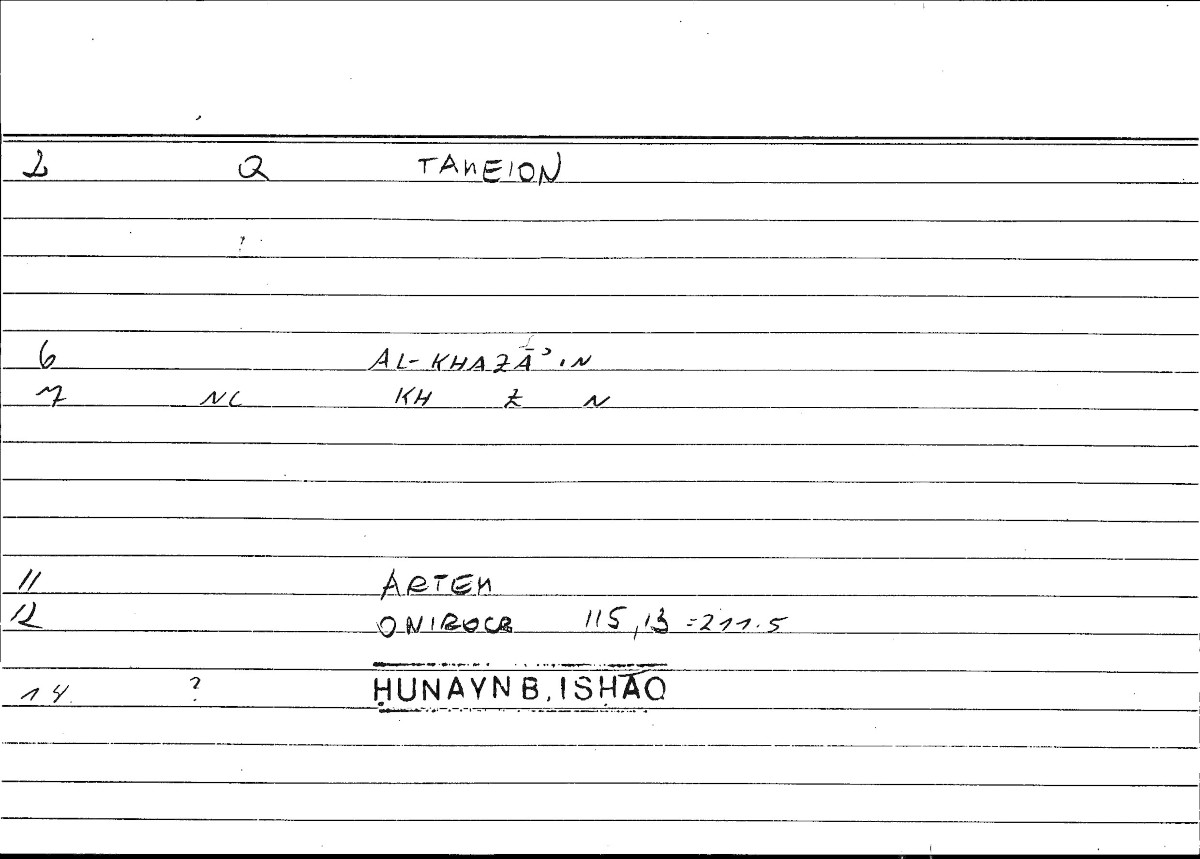 2 Q TAMEION
?
6 AL-KHAZĀʾIN
7 NC KH Z N
11 ARTEM
12 ONIROCR 115,13 =211.5
14. ? ḤUNAYN B. ISḤĀQ